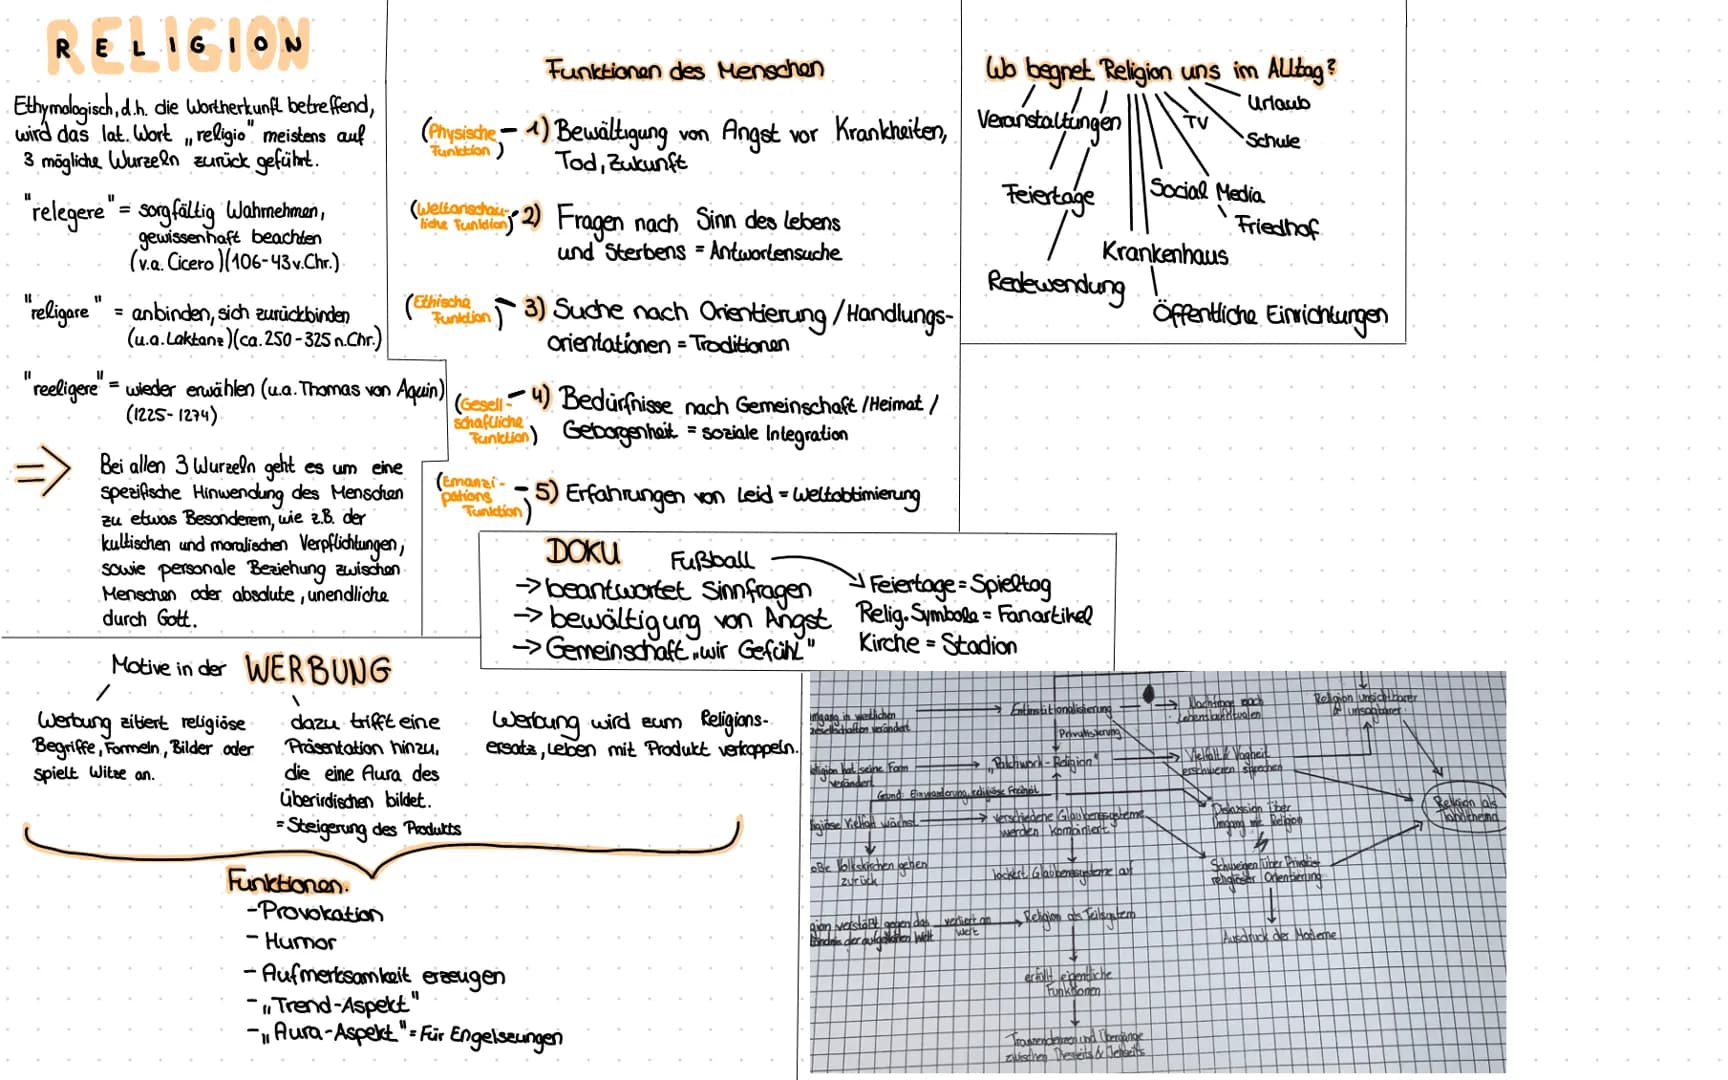 RELIGION
Ethymologisch, d.h. die Wortherkunft betreffend,
wird das lat. Wort „religio" meistens auf
3 mögliche Wurzeln zurück geführt.
"relegere" = sorgfältig Wahrnehmen,
gewissenhaft beachten
(v.a. Cicero)(106-43 v.Chr.)
"religare" = anbinden, sich zurückbinden
(u.a. Laktanz)(ca. 250-325 n.Chr.)
"reeligere" = wieder erwählen (u.a. Thomas von Aquin)
(1225-1274)
=> Bei allen 3 Wurzeln geht es um eine
spezifische Hinwendung des Menschen
zu etwas Besonderem, wie z.B. der
kultischen und moralischen Verpflichtungen,
sowie personale Beziehung zwischen
Menschen oder absolute, unendliche
durch Gott.
Funktionen des Menschen
(Physische Funktion) - 1) Bewältigung von Angst vor Krankheiten,
Tod, Zukunft
(Weltanschauliche Funktion) - 2) Fragen nach Sinn des Lebens
und Sterbens = Antwortensuche
(Ethische Funktion) - 3) Suche nach Orientierung/Handlungs-
orientationen = Traditionen
(Gesell-
schaftliche
Funktion) - 4) Bedürfnisse nach Gemeinschaft/Heimat/
Geborgenheit = soziale Integration
(Emanzi-
pations
Funktion) - 5) Erfahrungen von Leid = Weltobtimierung
Wo begnet Religion uns im Alltag?
Urlaub
Veranstaltungen
TV
Schule
Feiertage
Social Media
Friedhof
Krankenhaus
Redewendung
Öffentliche Einrichtungen
DOKU Fußball
-> beantwortet Sinnfragen
-> bewältigung von Angst
-> Gemeinschaft „wir Gefühl"
Feiertage = Spieltag
Relig. Symbole = Fanartikel
Kirche = Stadion
Motive in der WERBUNG
Werbung zitiert religiöse
Begriffe, Formeln, Bilder oder
spielt Witze an.
dazu trifft eine
Präsentation hinzu,
die eine Aura des
Überirdischen bildet.
= Steigerung des Produkts
Werbung wird zum Religions-
ersatz, Leben mit Produkt verkoppeln.
Funktionen:
- Provokation
- Humor
- Aufmerksamkeit erzeugen
- „Trend-Aspekt"
- „Aura-Aspekt" = Für Engelszungen
Entinstitutionalisierung
Nachfrage nach
Religion unsichtbarer
Privatisierung
„Patchwork-Religion"
Vielfalt & Vagheit
erschweren sprechen
verändert
Grund: Einwanderung, religiöse Freiheit
verschiedene Glaubenssysteme
werden kombiniert
Diskussion über
Umgang mit Religion
Religion als
Volkskirchen gehen
zurück
lockert Glaubenssysteme auf
Schweigen über Private
religiöser Orientierung
verliert an
Wert
Religion als Teilsystem
Ausdruck der Moderne
erfüllt eigentliche
Funktionen
Transzendenzen und Übergänge
zwischen Diesseits & Jenseits